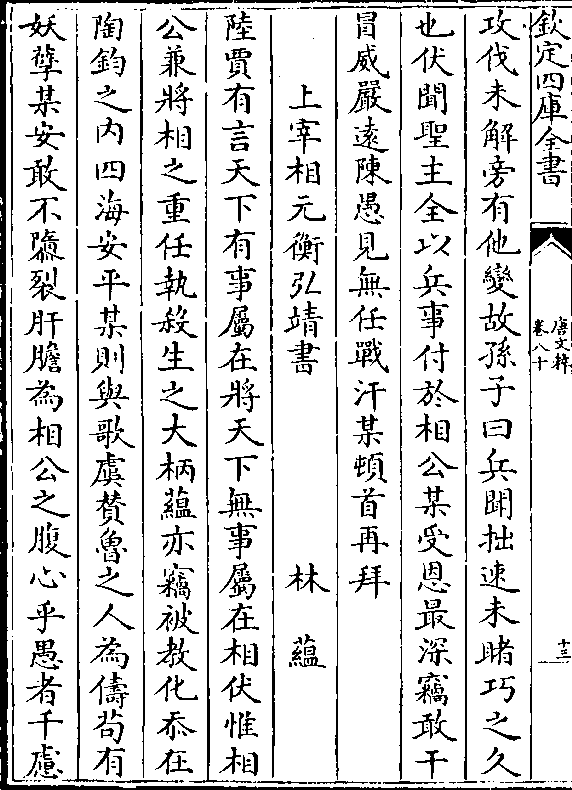 欽定四庫全書
唐文粹
卷八十
十三
攻伐未解旁有他變故孫子曰兵聞拙速未睹巧之久
也伏聞聖主全以兵事付於相公某受恩最深竊敢干
冒威嚴遠陳愚見無任戰汗某頓首再拜
上宰相元衡弘靖書
林蘊
陸賈有言天下有事屬在將天下無事屬在相伏惟相
公兼將相之重任執殺生之大柄蘊亦竊被教化忝在
陶鈞之内四海安平某則與歌虞贊魯之人為儔茍有
妖孽某安敢不隳裂肝膽為相公之腹心乎愚者千慮